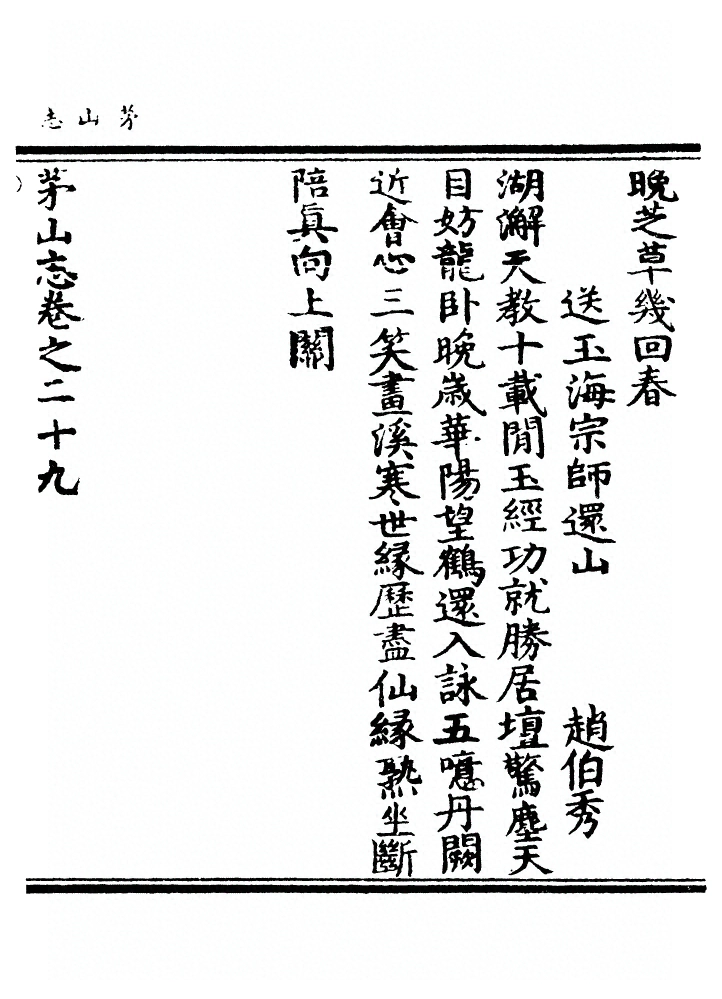 茅山志
晚芝草幾回春
送玉海宗師還山 趙伯秀
湖澥天教十載閒玉經功就勝居壇驚塵天
目妨龍卧晚歲華陽望鶴還入詠五噫丹闕
近會心三笑畫溪寒世縁歷盡仙縁熟坐斷
陪眞向上關
茅山志卷之二十九